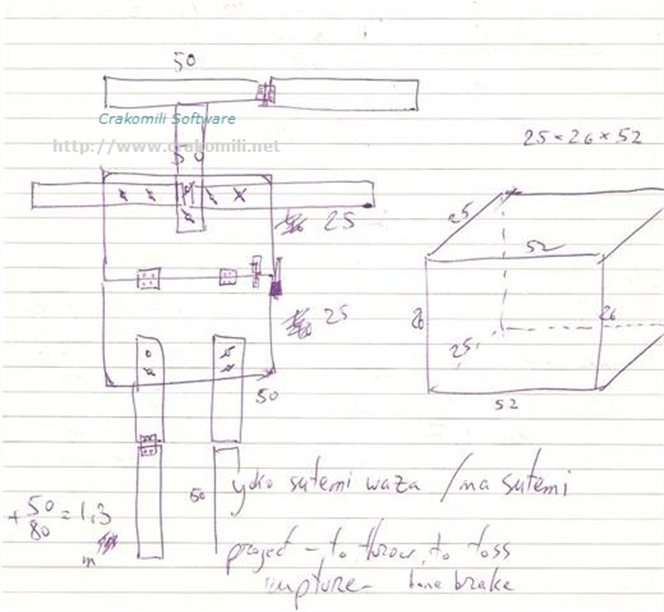 50
Crakomili Software
http://www.crakomili.net
50
25 × 26 × 52
25
25
52
26
26
25
52
25
50
50
+ 50/80 = 1,3
m
yoko sutemi waza / ma sutemi
project - to throw, to toss
rupture - bone brake